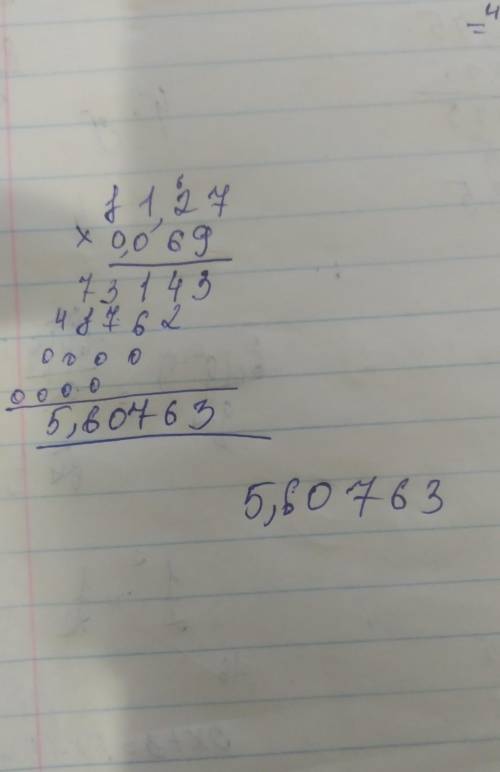 =4
81,27
6
× 0,069
73143
48762
0000
0000
5,60763
5,60763